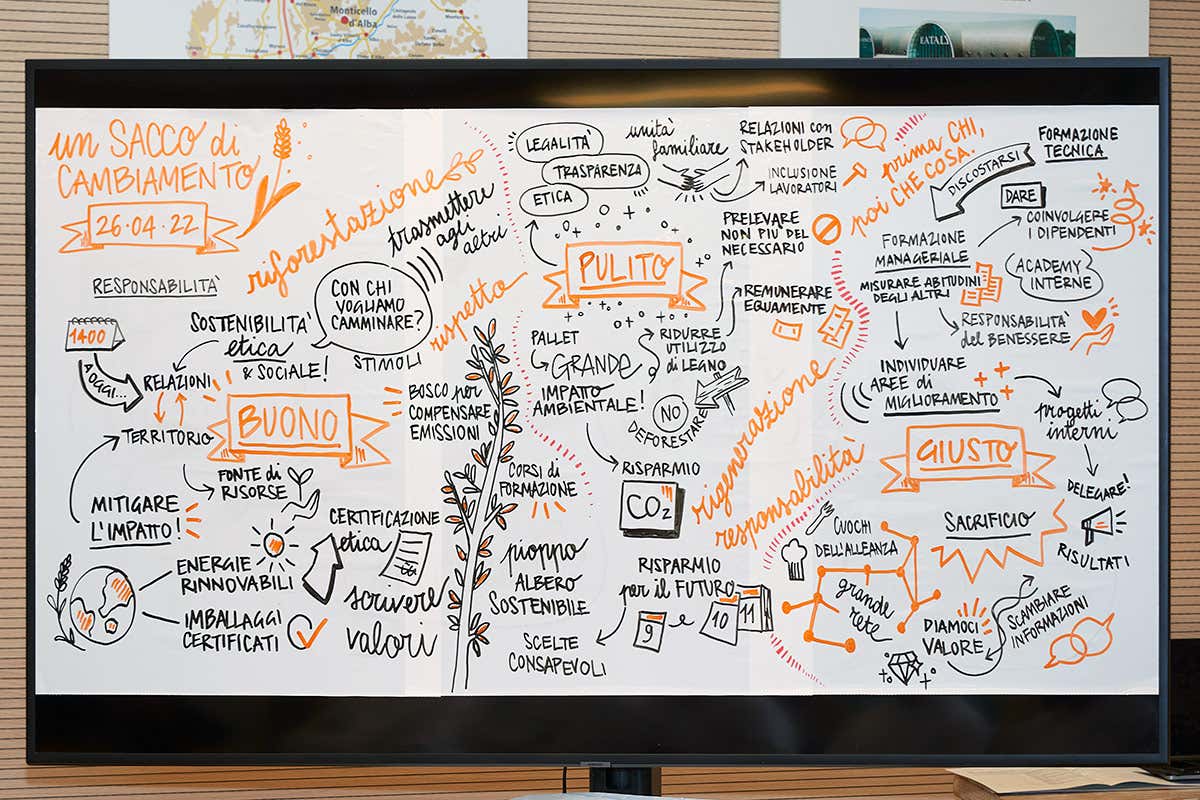 Monticello
d'Alba
EATALY
un SACCO di
CAMBIAMENTO
26.04.22
riforestazione
trasmettere
agli
altri
RESPONSABILITÀ
1400
A OGGI...
SOSTENIBILITA'
etica
& SOCIALE!
CON CHI
VOGLIAMO
CAMMINARE?
STIMOLI
rispetto
RELAZIONI
TERRITORIO
BUONO
BOSCO per
COMPENSARE
EMISSIONI
FONTE di
RISORSE
MITIGARE
L'IMPATTO!
ENERGIE
RINNOVABILI
IMBALLAGGI
CERTIFICATI
CERTIFICAZIONE
etica
scrivere
valori
LEGALITA'
TRASPARENZA
ETICA
unità
familiare
RELAZIONI con
STAKEHOLDER
INCLUSIONE
LAVORATORI
PRELEVARE
NON PIU' DEL
NECESSARIO
PULITO
REMUNERARE
EQUAMENTE
PALLET
GRANDE
IMPATTO
AMBIENTALE!
RIDURRE
UTILIZZO
di LEGNO
NO
DEFORESTARE
CORSI di
FORMAZIONE
pioppo
ALBERO
SOSTENIBILE
RISPARMIO
CO2
RISPARMIO
per il FUTURO
9 e 10 11
SCELTE
CONSAPEVOLI
rigenerazione
responsabilità
prima CHI,
poi CHE COSA.
FORMAZIONE
TECNICA
DISCOSTARSI
DARE
COINVOLGERE
I DIPENDENTI
FORMAZIONE
MANAGERIALE
ACADEMY
INTERNE
MISURARE ABITUDINI
DEGLI ALTRI
RESPONSABILITÀ
del BENESSERE
INDIVIDUARE
AREE di
MIGLIORAMENTO
progetti
interni
GIUSTO
DELEGARE!
RISULTATI
CUOCHI
DELL'ALLEANZA
grande
rete
SACRIFICIO
DIAMOCI
VALORE
SCAMBIARE
INFORMAZIONI